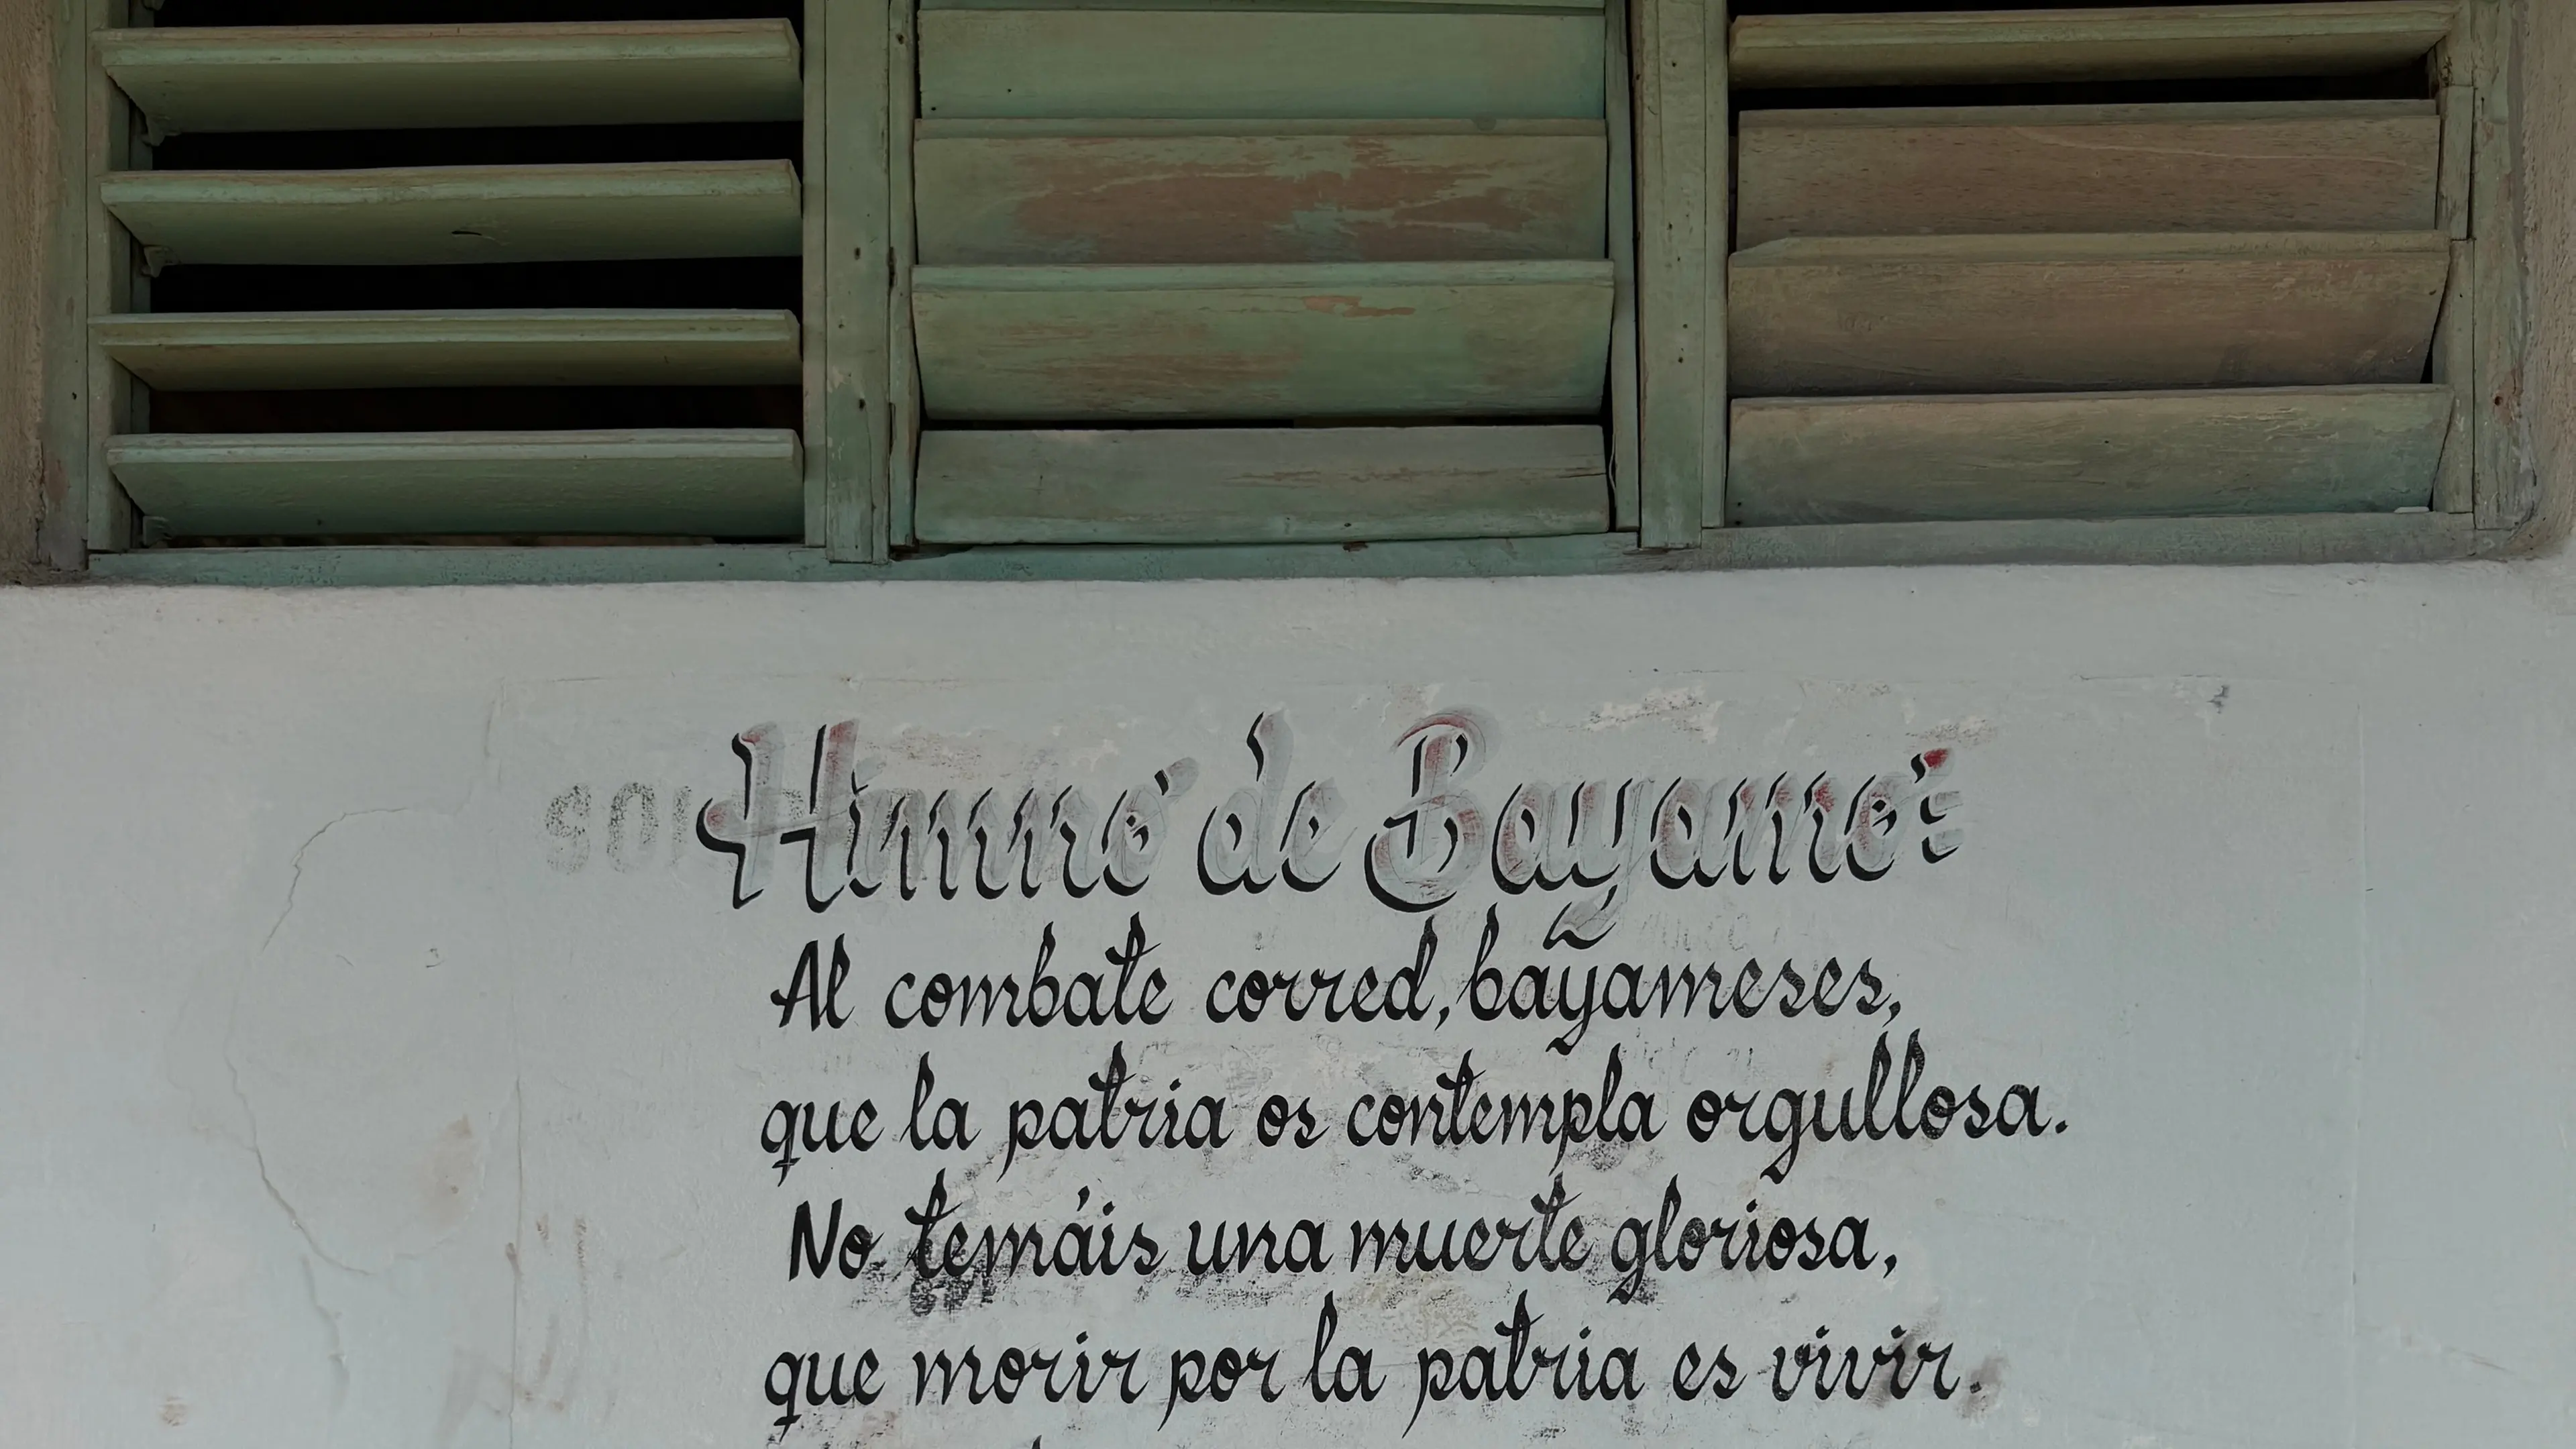 Himno de Bayamo:
Al combate corred, bayameses,
que la patria os contempla orgullosa.
No temáis una muerte gloriosa,
que morir por la patria es vivir.